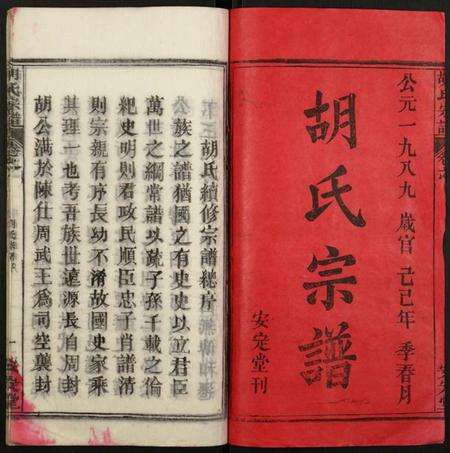 公元一九八九歲官己巳年季春月
胡氏宗譜
安定堂刊
胡氏宗譜
胡氏續修宗譜總序
公族之譜猶國之有史史以立君臣
萬世之綱常譜以疏子孫千載之倫
紀史明則君政民順臣忠子肖譜清
則宗親有序長幼不淆故國史家乘
其理一也考吾族世遠源長自周封
胡公滿於陳仕周武王為司空襲封
一
安定堂